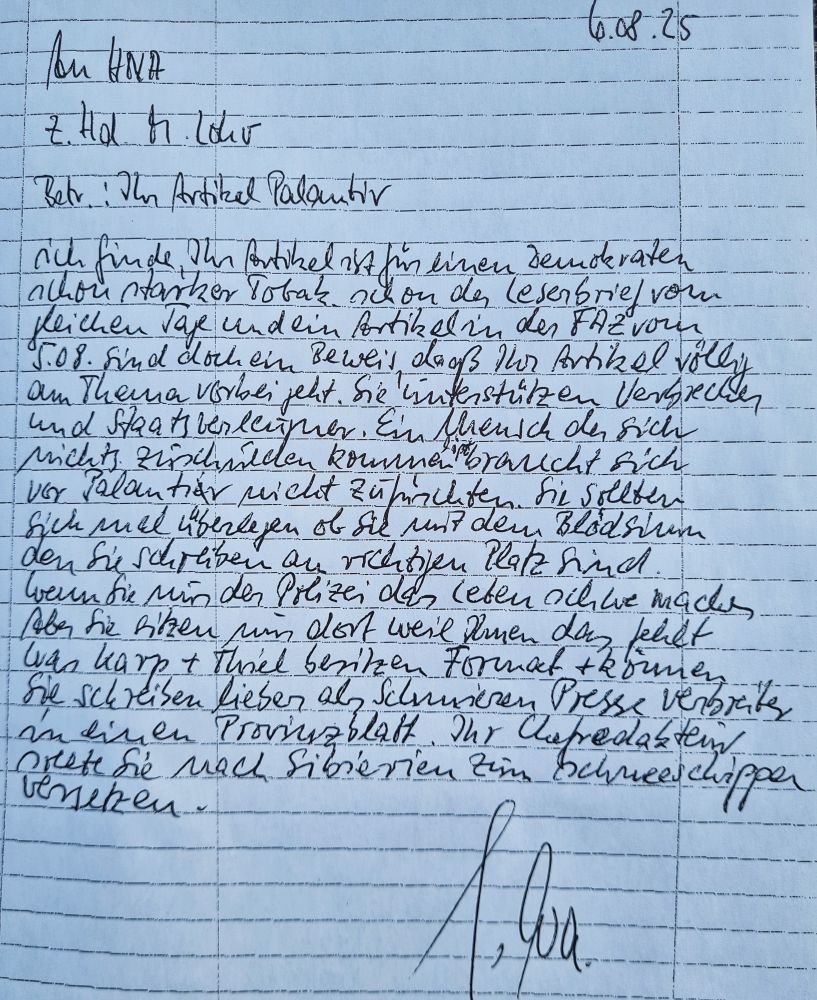 6.08.25
An HNA
z. Hd Fr. Lohr
Betr.: Ihr Artikel Palantir
ich finde, Ihr Artikel ist für einen Demokraten
schon starker Tobak schon der Leserbrief vom
gleichen Tage und ein Artikel in der FAZ vom
5.08. sind doch ein Beweis, daaß Ihr Artikel völlig
am Thema vorbei geht. Sie unterstützen Verbrecher
und Staatsverleugner. Ein Mensch der sich
nichts zuschulden kommen braucht sich
vor Palantir nicht zufürchten. Sie sollten
sich mal überlegen ob Sie mit dem Blödsinn
den Sie schreiben an richtigen Platz sind.
wenn Sie nur der Polizei das Leben schwe machen
Aber Sie sitzen nur dort weil Ihnen das fehlt
was Karp + Thiel besitzen Format + können
Sie schreiben lieber als Schmieren Presse Verbreiter
in einen Provinzblatt. Ihr Chefredakteur
sollte Sie nach Sibierien zum Schneeschippen
versetzen.